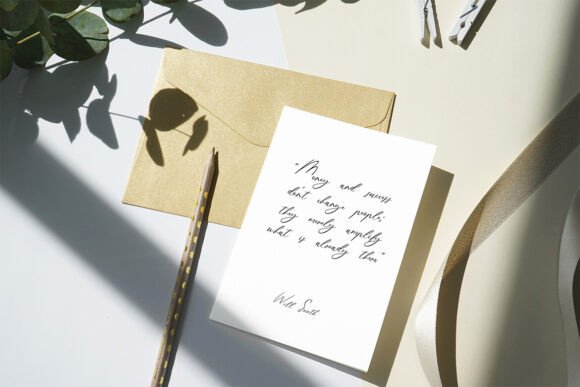 "Money and success
don't change people;
they merely amplify
what is already there"
Will Smith